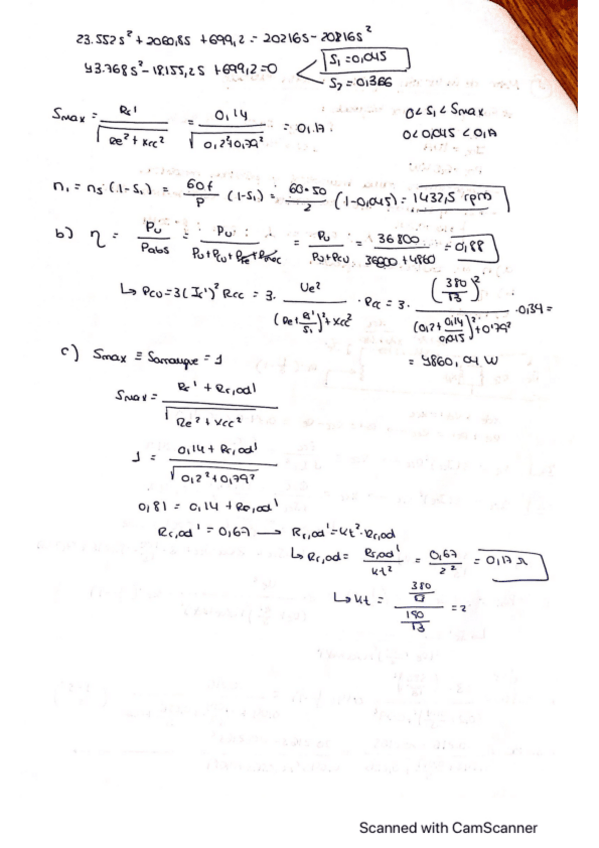 23.552s² + 2060,8s + 699,2 = 20216s - 20216s²
43.768s² - 18.155,2s + 699,2 = 0
S₁ = 0,045
S₂ = 0,366
Smax = Rr' / √(Re² + Xcc²) = 0,14 / √(0,2² + 0,79²) = 0,17
0 < S₁ < Smax
0 < 0,045 < 0,17
n₁ = ns · (1-S₁) = 60f / P (1-S₁) = 60·50 / 2 (1-0,045) = 1432,5 rpm
b) η = Pu / Pabs = Pu / (Pu + Pcu + Pfe + Pmec) = Pu / (Pu + Pcu) = 36800 / (36800 + 4860) = 0,88
↳ Pcu = 3 (Ir')² Rcc = 3 · Ue² / ((Re + Rr'/S₁)² + Xcc²) · Rcc = 3 · (380/√3)² / ((0,2 + 0,14/0,045)² + 0,79²) · 0,34 =
= 4860,04 W
c) Smax ≡ Sarranque = 1
Smax = (Rr' + Rr,ad') / √(Re² + Xcc²)
1 = (0,14 + Rr,ad') / √(0,2² + 0,79²)
0,81 = 0,14 + Rr,ad'
Rr,ad' = 0,67 → Rr,ad' = kt² · Rr,ad
↳ Rr,ad = Rr,ad' / kt² = 0,67 / 2² = 0,17 Ω
↳ kt = (380/√3) / (190/√3) = 2
Scanned with CamScanner